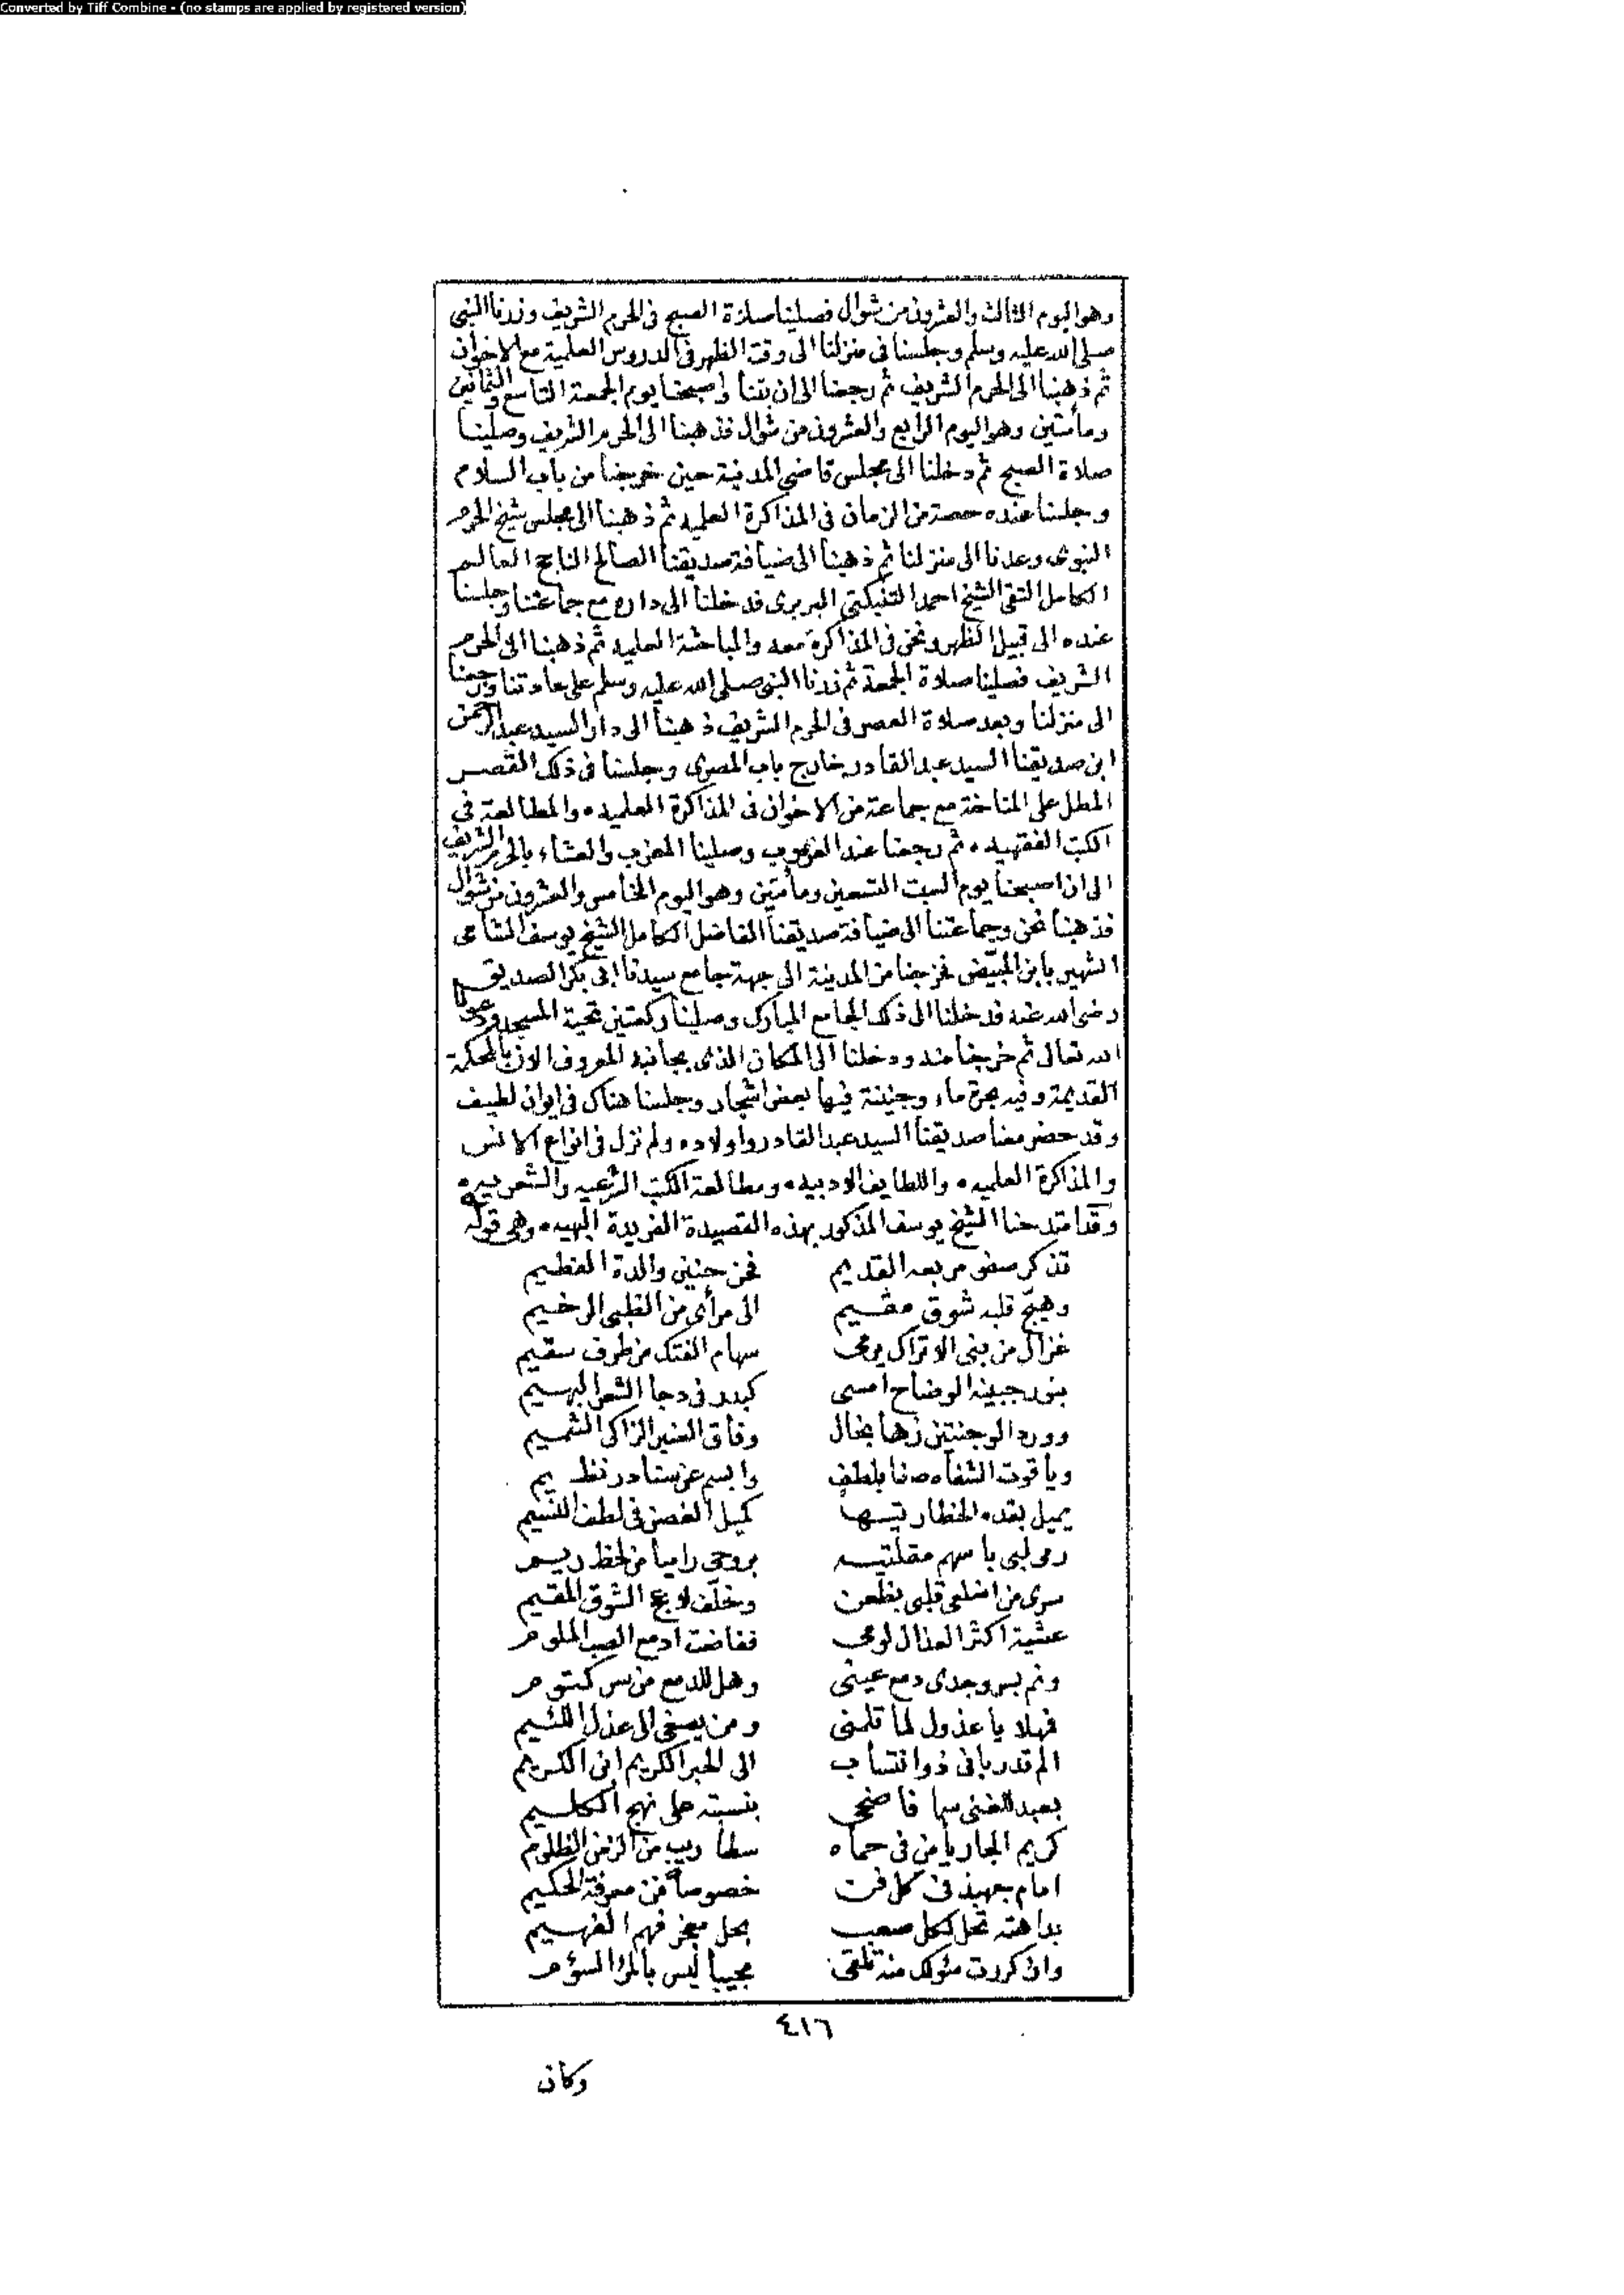 Converted by Tiff Combine - (no stamps are applied by registered version)
وهو اليوم الثالث والعشرون من شوال فصلينا صلاة الصبح في الحرم الشريف وزرنا النبي
صلى الله عليه وسلم وجلسنا في منزلنا الى وقت الظهر في الدروس العلمية مع الاخوان
ثم ذهبنا الى الحرم الشريف ثم رجعنا الى ان بتنا واصبحنا يوم الجمعة التاسع والثمانين
ومأتين وهو اليوم الرابع والعشرون من شوال فذهبنا الى الحرم الشريف وصلينا
صلاة الصبح ثم دخلنا الى مجلس قاضي المدينة حين خرجنا من باب السلام
وجلسنا عنده حصة من الزمان في المذاكرة العلميه ثم ذهبنا الى مجلس شيخ الحرم
النبوى وعدنا الى منزلنا ثم ذهبنا الى ضيافة صديقنا الصالح الناجح العالم
الكامل التقى الشيخ احمد التنبكتي البربرى فدخلنا الى داره مع جماعتنا وجلسنا
عنده الى قبيل الظهر ونحن في المذاكرة معه والمباحثة العلميه ثم ذهبنا الى الحرم
الشريف فصلينا صلاة الجمعة ثم زرنا النبي صلى الله عليه وسلم على عادتنا ورجعنا
الى منزلنا وبعد صلاة العصر في الحرم الشريف ذهبنا الى دار السيد عبد الرحمن
ابن صديقنا السيد عبد القادر خارج باب المصرى وجلسنا في ذلك القصر
المطل على المناخة مع جماعة من الاخوان في المذاكرة العلميه • والمطالعة في
الكتب الفقهيه • ثم رجعنا عند الغروب وصلينا المغرب والعشاء بالحرم الشريف
الى ان اصبحنا يوم السبت التسعين ومأتين وهو اليوم الخامس والعشرون من شوال
فذهبنا نحن وجماعتنا الى ضيافة صديقنا الفاضل الكامل الشيخ يوسف
الشهير بابن المبيّض فخرجنا من المدينة الى جهة جامع سيدنا ابى بكر الصديق
رضى الله عنه فدخلنا الى ذلك الجامع المبارك وصلينا ركعتين تحية المسجد ودعونا
الله تعالى ثم خرجنا منه ودخلنا الى المكان الذى بجانبه المعروف الان بالمحكمة
القديمة وفيه بحرة ماء وجنينة فيها بعض اشجار وجلسنا هناك في ايوان لطيف
وقد حضر معنا صديقنا السيد عبد القادر واولاده ولم نزل في انواع الانس
والمذاكرة العلميه • واللطايف الادبيه • ومطالعة الكتب الشرعيه والشعريه •
وقد امتدحنا الشيخ يوسف المذكور بهذه القصيدة الفريدة البهيه • وهى قوله
تذكر سفو مربعه القديم فحن حنين والدة الفطيم
وهيّج قلبه شوق مقيم الى مرأى من الظبى الرخيم
غزال من بنى الاتراك يرمى سهام الفتك من طرف سقيم
بنور جبينه الوضاح امسى كبدر في دجا الشعر البهيم
وورد الوجنتين زها بخال وفاق العنبر الزاكى الشميم
وياقوت الشفاه صفا بلطف وابسم عن سنا در نظيم
يميل بقده الخطار تيها كميل الغصن في لطف النسيم
رمى لبى باسهم مقلتيه بروحى راميا من لحظ ريم
سرى من اضلعى قلبى بظعن وخلّف لاعج الشوق المقيم
عشية اكثر العذال لومى ففاضت ادمع الصب الملوم
ونم بسر وجدى دمع عينى وهل للدمع من سر كتوم
فهلا يا عذول لما تلمنى ومن يصغى الى عذل اللئيم
الم تدر بانى ذو انتساب الى الحبر الكريم ابن الكريم
بعبد الغنى سما فاضحى بنسبته على نهج الكليم
كريم الجار يأمن في حماه سطا ريب من الزمن الظلوم
امام جهبذ في كل فن خصوصاً فن معرفة الحكيم
بداهته تحل لكل صعب بحل معجز فهم الفهيم
وان كررت سؤلك منه تلقى مجيباً ليس بالمرء السؤم
٤١٦
وكان